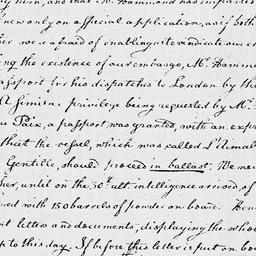 by him, and that Mr. Hammond has
new only on a special application, as if both
her we are afraid of enabling us to vindicate our
ng the existence of our embargo, Mr. Hamm
assport for his dispatches to London by the
A similar privilege being requested by Mr.
Paix, a passport was granted, with an exp
that the vessel, which was called L'Amab
Gentille, should proceed in ballast. We ne
her, until on the 30th. ult intelligence arrived, of
ned with 150 barrels of powder on board.
t letter and documents, displaying the who
p to this day. If before this letter is put on bo